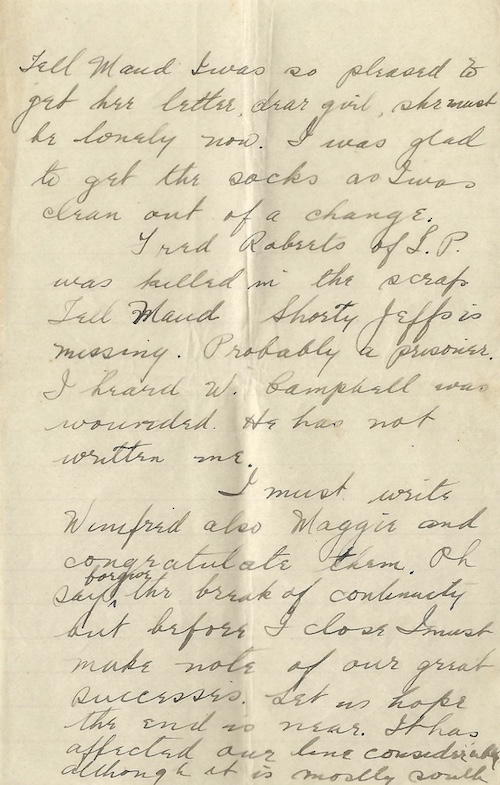 Tell Maud I was so pleased to
get her letter, dear girl, she must
be lonely now. I was glad
to get the socks as I was
clean out of a change.
Fred Roberts of S.P.
was killed in the scrap
Tell Maud Shorty Jeffs is
missing. Probably a prisoner.
I heard W. Campbell was
wounded. He has not
written me.
I must write
Winifred also Maggie and
congratulate them. Oh
forgive
say ^ the break of continuity
but before I close I must
make note of our great
successes. Let us hope
the end is near. It has
affected our line considerably
although it is mostly south